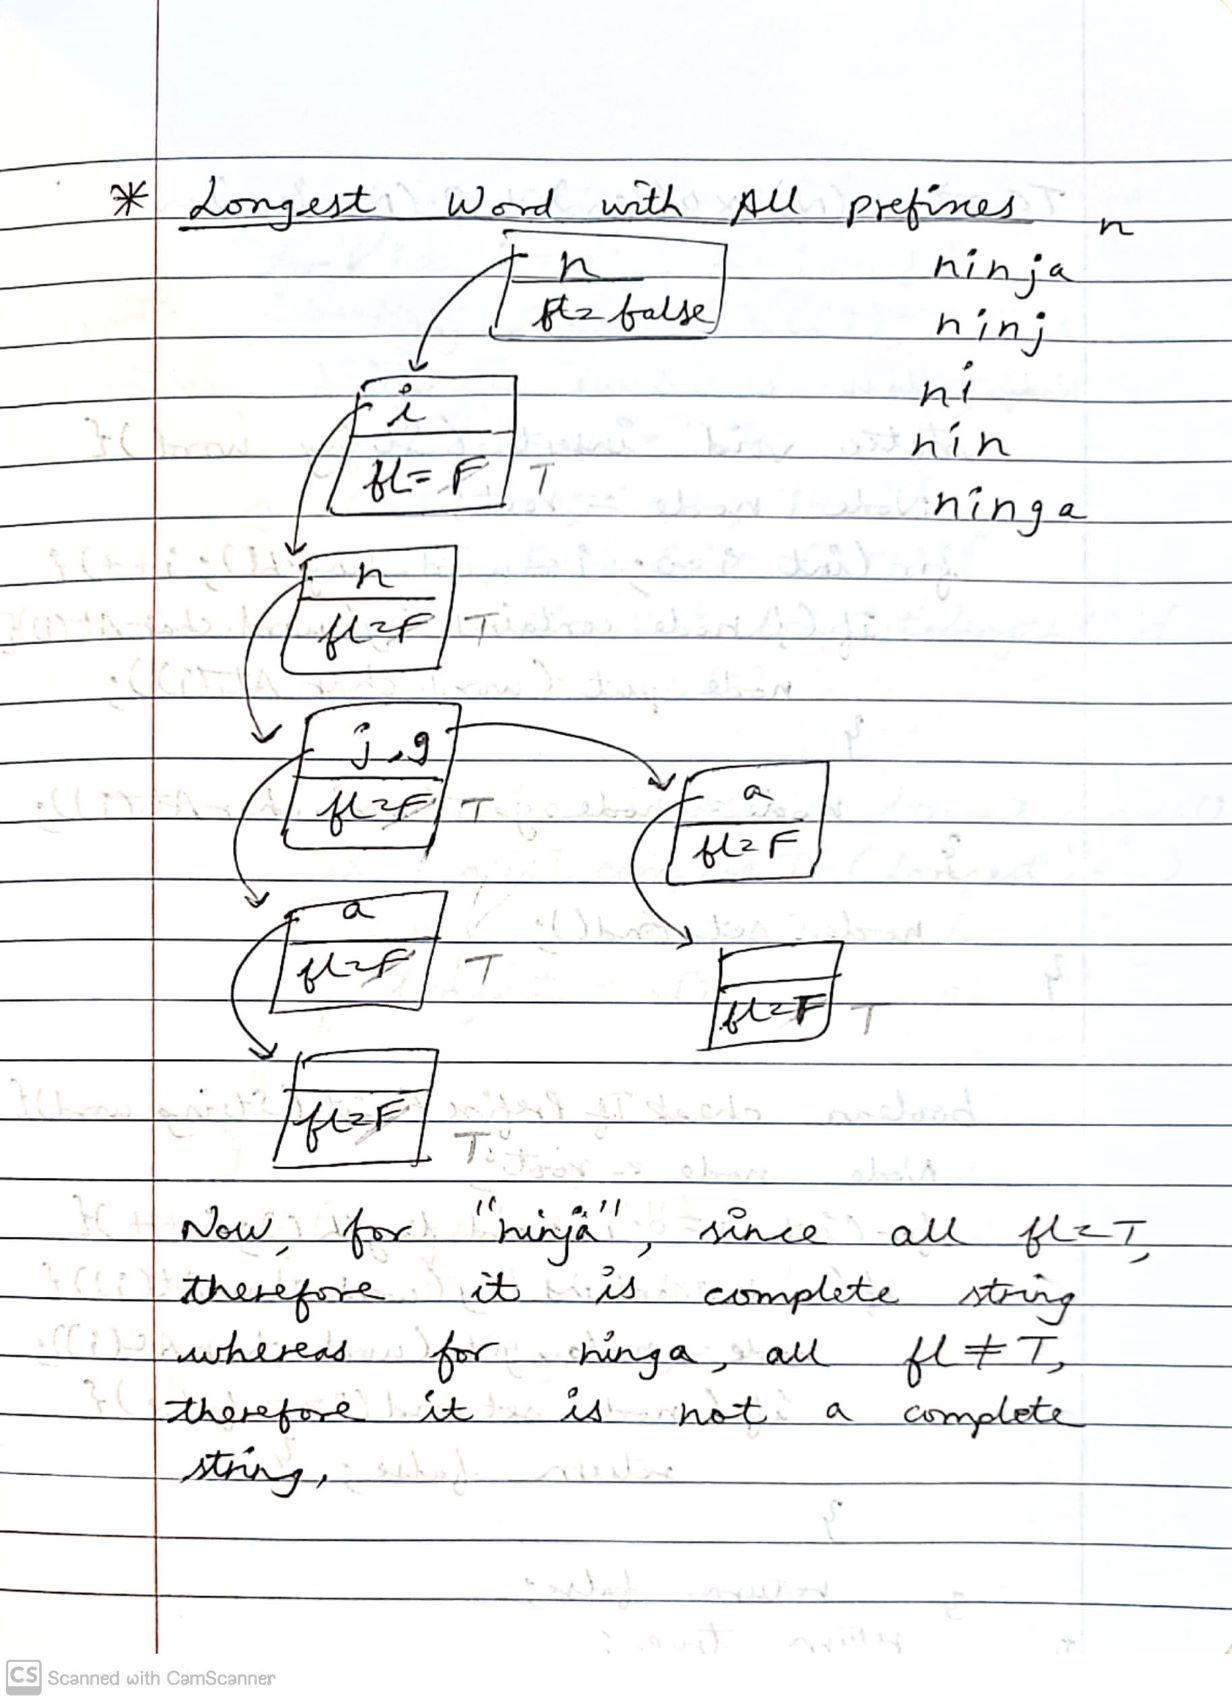 * Longest Word with All prefixes
n
n
fl = false
ninja
ninj
ni
nin
ninga
i
fl = F T
n
fl = F T
j, g
fl = F T
a
fl = F
a
fl = F T
fl = F T
fl = F T
Now, for "ninja", since all fl = T,
therefore it is complete string
whereas for ninga, all fl ≠ T,
therefore it is not a complete
string,
CS Scanned with CamScanner